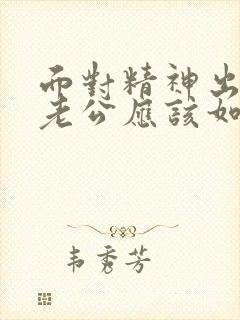 而對精神出
老公應該如
韦秀芳